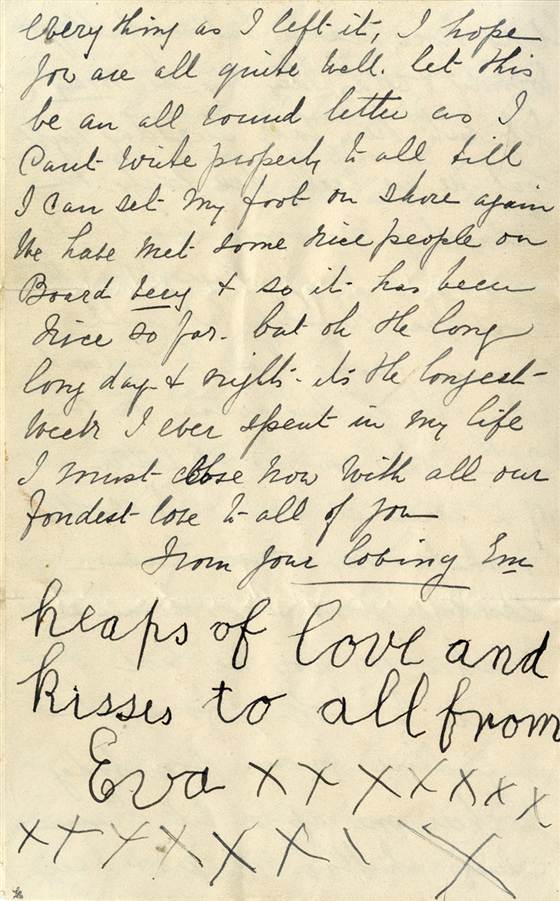 everything as I left it, I hope
you are all quite well. let this
be an all round letter as I
Cant write properly to all till
I can set my foot on shore again
We have met some nice people on
Board very & so it has been
nice so far. but oh the long
long day & nights. its the longest
Week I ever spent in my life
I must close now with all our
fondest love to all of you
From your loving Em
heaps of love and
kisses to all from
Eva x x x x x x x
x x x x x x \ \ x